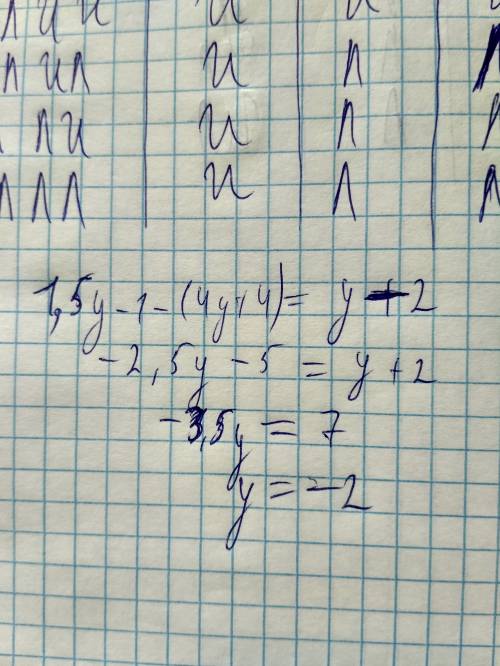 и и и и
л и л и л л
л и и л л
л л л и л л
1,5y - 1 - (4y + 4) = y + 2
-2,5y - 5 = y + 2
-3,5y = 7
y = -2